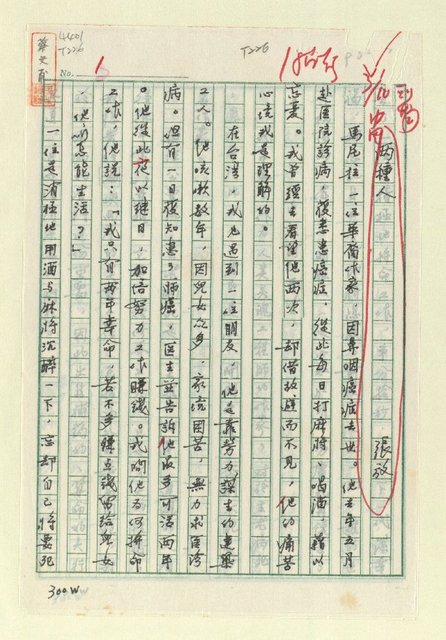 兩種人 張放
馬尼拉一位華裔作家,因鼻咽癌症去世。他去年五月
赴医院診病,獲悉患癌症,從此每日打麻將、喝酒,藉以
忘憂。我曾經去看望他兩次,却借故避而不見,他的痛苦
心境我是理解的。
在台灣,我也遇到一位朋友,他是靠勞力謀生的建築
工人。他咳嗽数年,因兒女众多,家境困苦,無力求医治
病。但有一日獲知患了肺癌,医生並告訴他最多可活兩年
。他從此夜以繼日,加倍努力工作賺錢。我問他為何拚命
工作,他說:「我只有兩年壽命,若不多賺点錢留給兒女
,他们怎能生活?」
一位是消極地用酒与麻將沉醉一下,忘却自己將要死
T226
T226
No. 1
300W